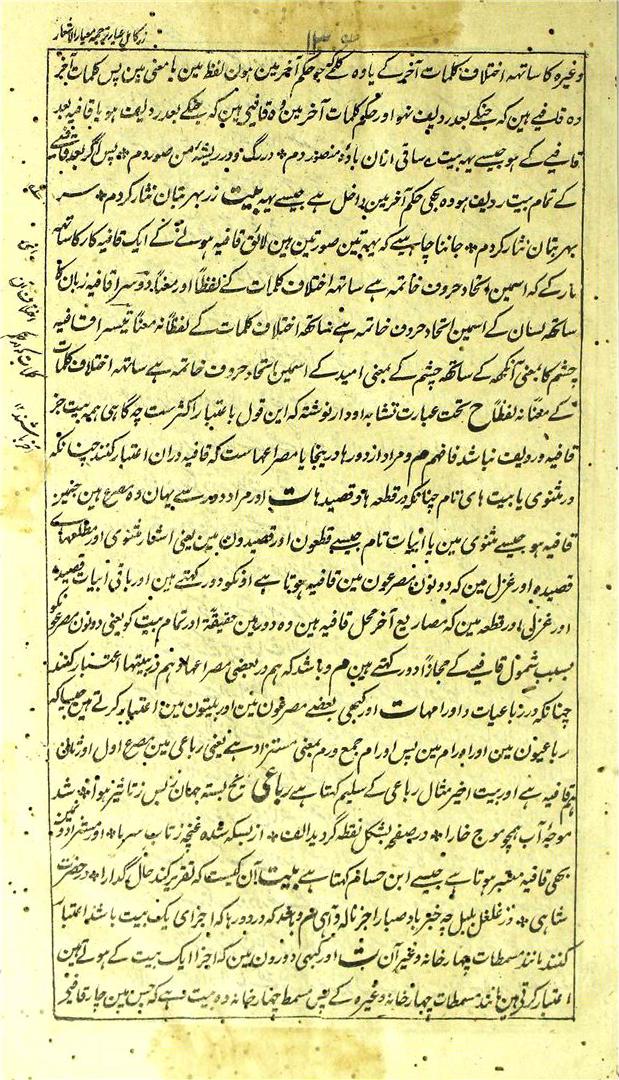 زر کامل عیار ترجمہ معیار الاشعار
وغیرہ کا ساتھہ اختلاف کلمات آخر کے یا وہ کلمے کہ جو حکم آخر مین ہون لفظ مین یا معنی مین پس کلمات آخر
وہ قافیے ہین کہ جنکے بعد ردیف نہو اور حکم کلمات آخر مین وہ قافیے ہین کہ جنکے بعد ردیف ہو یا قافیہ بعد
قافیے کے ہو جیسے یہہ بیت ے ساقی ازان بادۂ منصور دم * در رگ و در ریشۂ من صور دم * پس اگر بعد قافیے
کے تمام بیت ردیف ہو وہ بھی حکم آخر مین داخل ہے جیسے یہہ بیت زر بہر بتان نثار کردم * سر
بہر بتان نثار کردم * جاننا چاہیے کہ یہہ تین صورتین ہین لائق قافیہ ہونے کے ایک قافیہ کار کا ساتھہ
مار کے کہ اسمین اتحاد حروف خاتمہ ہے ساتھہ اختلاف کلمات کے لفظاً اور معناً دوسرا قافیہ زبان کا
ساتھہ لسان کے اسمین اتحاد حروف خاتمہ ہے ساتھہ اختلاف کلمات کے لفظاً نہ معناً تیسرا قافیہ
چشم کا بمعنی آنکھہ کے ساتھہ چشم کے بمعنی امید کے اسمین اتحاد حروف خاتمہ ہے ساتھہ اختلاف کلمات
کے معناً نہ لفظاً ح تحت عبارت تشابہ ادوار نوشتہ کہ این قول باعتبار اکثرست چہ گاہی ہمہ بیت جز
قافیہ و ردیف نباشد فافہم م و مراد از دورہا درینجا یا مصراعہاست کہ قافیہ دران اعتبار کنند چنانکہ
در مثنوی یا بیت های تام چنانکہ در قطعہ ها و قصیدہ ها ت اور مراد دور سے یہان وہ مصرع ہین جنمین
قافیہ ہو جیسے مثنوی مین یا ابیات تام جیسے قطعون اور قصیدون مین یعنی اشعار مثنوی اور مطلعہای
قصیدہ اور غزل مین کہ دونون مصرعون مین قافیہ ہوتا ہے اونکو دور کہتے ہین اور باقی ابیات قصیدہ
اور غزل اور قطعہ مین کہ مصاریع آخر محل قافیہ ہین وہ دور ہین حقیقۃً اور تمام بیت کو یعنی دونون مصرعونکو
بسبب شمول قافیے کے مجازاً دور کہتے ہین م و باشد کہ ہم در بعضی مصراعہا و ہم در بیتہا اعتبار کنند
چنانکہ در رباعیات و اورامہا ت اور کبھی بعضے مصرعون مین اور بیتون مین اعتبار کرتے ہین جیسا کہ
رباعیون مین اور اورام مین پس اورام جمع ورم بمعنی مستزاد ہے یعنی رباعی مین مصرع اول اور ثانی
ہم قافیہ ہے اور بیت اخیر مثال رباعی کے سلیم کہتا ہے رباعی یخ بستہ جہان ز بس ز تاثیر ہوا * شد
موجۂ آب ہمچو موج خارا * در صفحہ بشکل نقطہ گردید الف * از بسکہ شدہ غنچہ ز تاب سرما * اور مستزادونمین
بھی قافیہ معتبر ہوتا ہے جیسے ابن حسام کہتا ہے بیت آن کیست کہ تقریر کند حال گدا را * در حضرت
شاہی * وز غلغل بلبل چہ خبر باد صبا را جز نالہ و آہی م و باشد کہ در دورہا کہ اجزای یک بیت باشند اعتبار
کنند مانند مسمطات چہار خانہ و غیر آن ت اور کبھی دورون مین کہ اجزا ایک بیت کے ہوتے ہین
اعتبار کرتے ہین مانند مسمطات چہار خانہ وغیرہ کے پس مسمط چہار خانہ وہ بیت ہے کہ جس مین چار قافیے